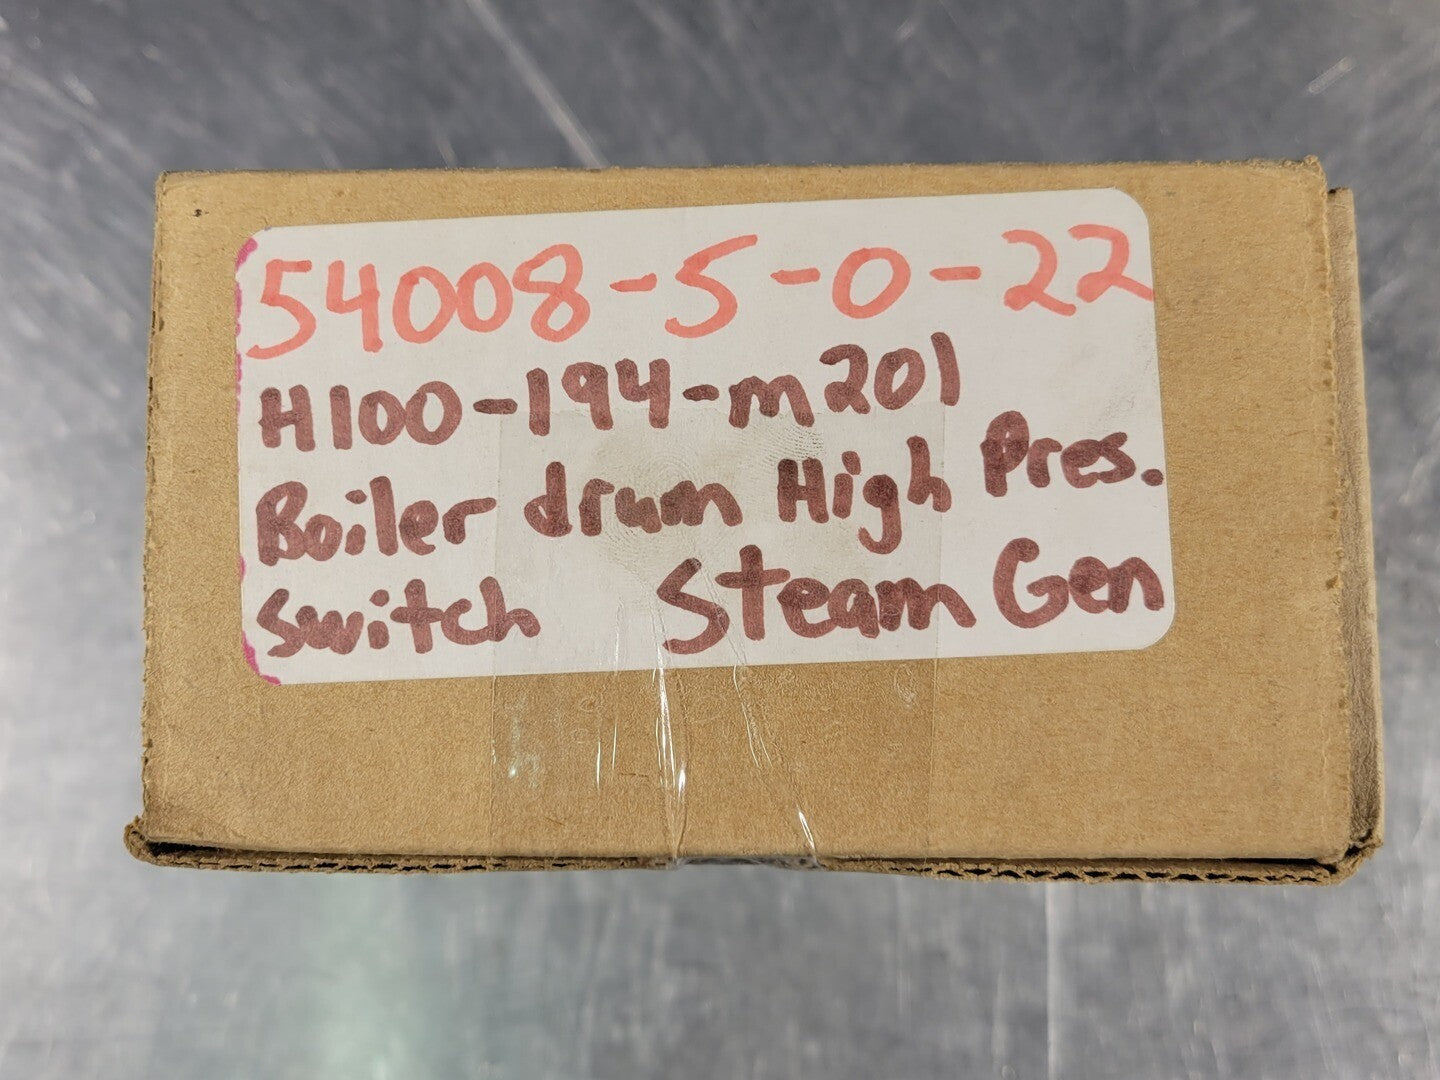 54008-5-0-22
H100-194-m201
Boiler drum High Pres.
switch Steam Gen